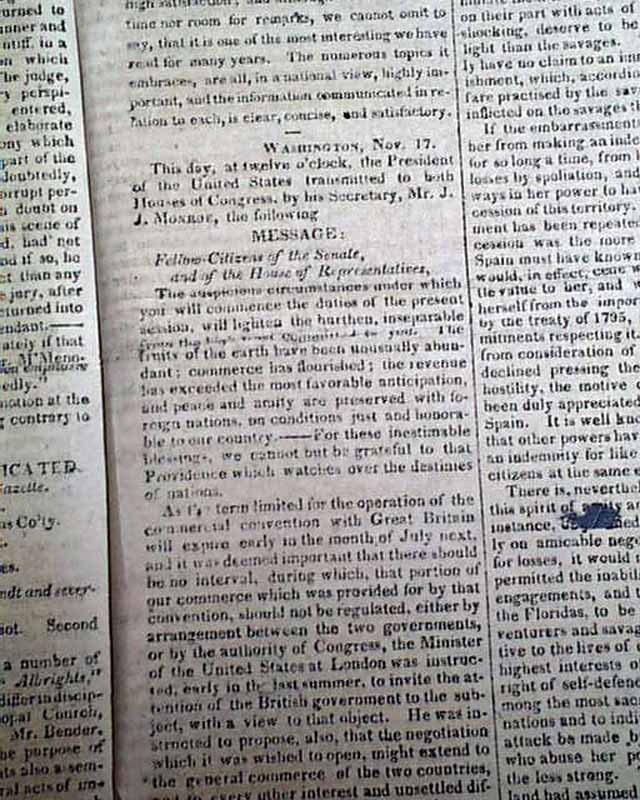 urned to
nner and
ntiff, in a
on which
he judge,
y perspi-
entered,
elaborate
ony which
part of the
doubtedly,
orrupt per-
h doubt on
is scene of
d, had not
nd if so, he
ct than any
e jury, after
eturned into
endant.——
ately if that
edly."
motion at the
g contrary to
ICATED.
Gazette.
as Co'ly.
es.
ndt and sever-
sot. Second
a number of
Albrights,"
differ in discip-
opal Church,
Mr. Bender.
he purpose of
its also a sem-
ral acts of im-
high satisfaction;
time nor room for remarks, we cannot omit to
say, that it is one of the most interesting we have
read for many years. The numerous topics it
embraces, are all, in a national view, highly im-
portant, and the information communicated in re-
lation to each, is clear, concise, and satisfactory.
WASHINGTON, Nov. 17.
This day, at twelve o'clock, the President
of the United States transmitted to both
Houses of Congress, by his Secretary, Mr. J.
J. MONROE, the following
MESSAGE:
Fellow-Citizens of the Senate,
and of the House of Representatives,
The auspicious circumstances under which
you will commence the duties of the present
session, will lighten the burthen, inseparable
from the high trust committed to you. The
fruits of the earth have been unusually abun-
dant; commerce has flourished; the revenue
has exceeded the most favorable anticipation,
and peace and amity are preserved with fo-
reign nations, on conditions just and honora-
ble to our country.——For these inestimable
blessings, we cannot but be grateful to that
Providence which watches over the destinies
of nations.
As the term limited for the operation of the
commercial convention with Great Britain
will expire early in the month of July next,
and it was deemed important that there should
be no interval, during which, that portion of
our commerce which was provided for by that
convention, should not be regulated, either by
arrangement between the two governments,
or by the authority of Congress, the Minister
of the United States at London was instruc-
ted, early in the last summer, to invite the at-
tention of the British government to the sub-
ject, with a view to that object. He was in-
structed to propose, also, that the negotiation
which it was wished to open, might extend to
the general commerce of the two countries,
and to every other interest and unsettled dif-
on their part with acts of
shocking, deserve to be
light than the savages.
ly have no claim to an im
ishment, which, accordi
fare practised by the sav
inflicted on the savages
If the embarrassment
her from making an inde
for so long a time, from
losses by spoliation, and
ways in her power to ha
cession of this territory.
ment has been repeate
cession was the more
Spain must have known
would, in effect, cede
tle value to her, and w
herself from the impor
by the treaty of 1795,
mitments respecting it.
from consideration of
declined pressing the
hostility, the motive
been duly appreciated
Spain. It is well kno
that other powers hav
an indemnity for like
citizens at the same e
There is, neverthel
this spirit of amity an
instance,
ly on amicable nego
for losses, it would
permitted the inabili
engagements, and t
the Floridas, to be
venturers and savag
tive to the lives of
highest interests o
right of self-defenc
mong the most sac
nations and to indi
attack be made by
who abuse her po
the less strong.
land had assumed